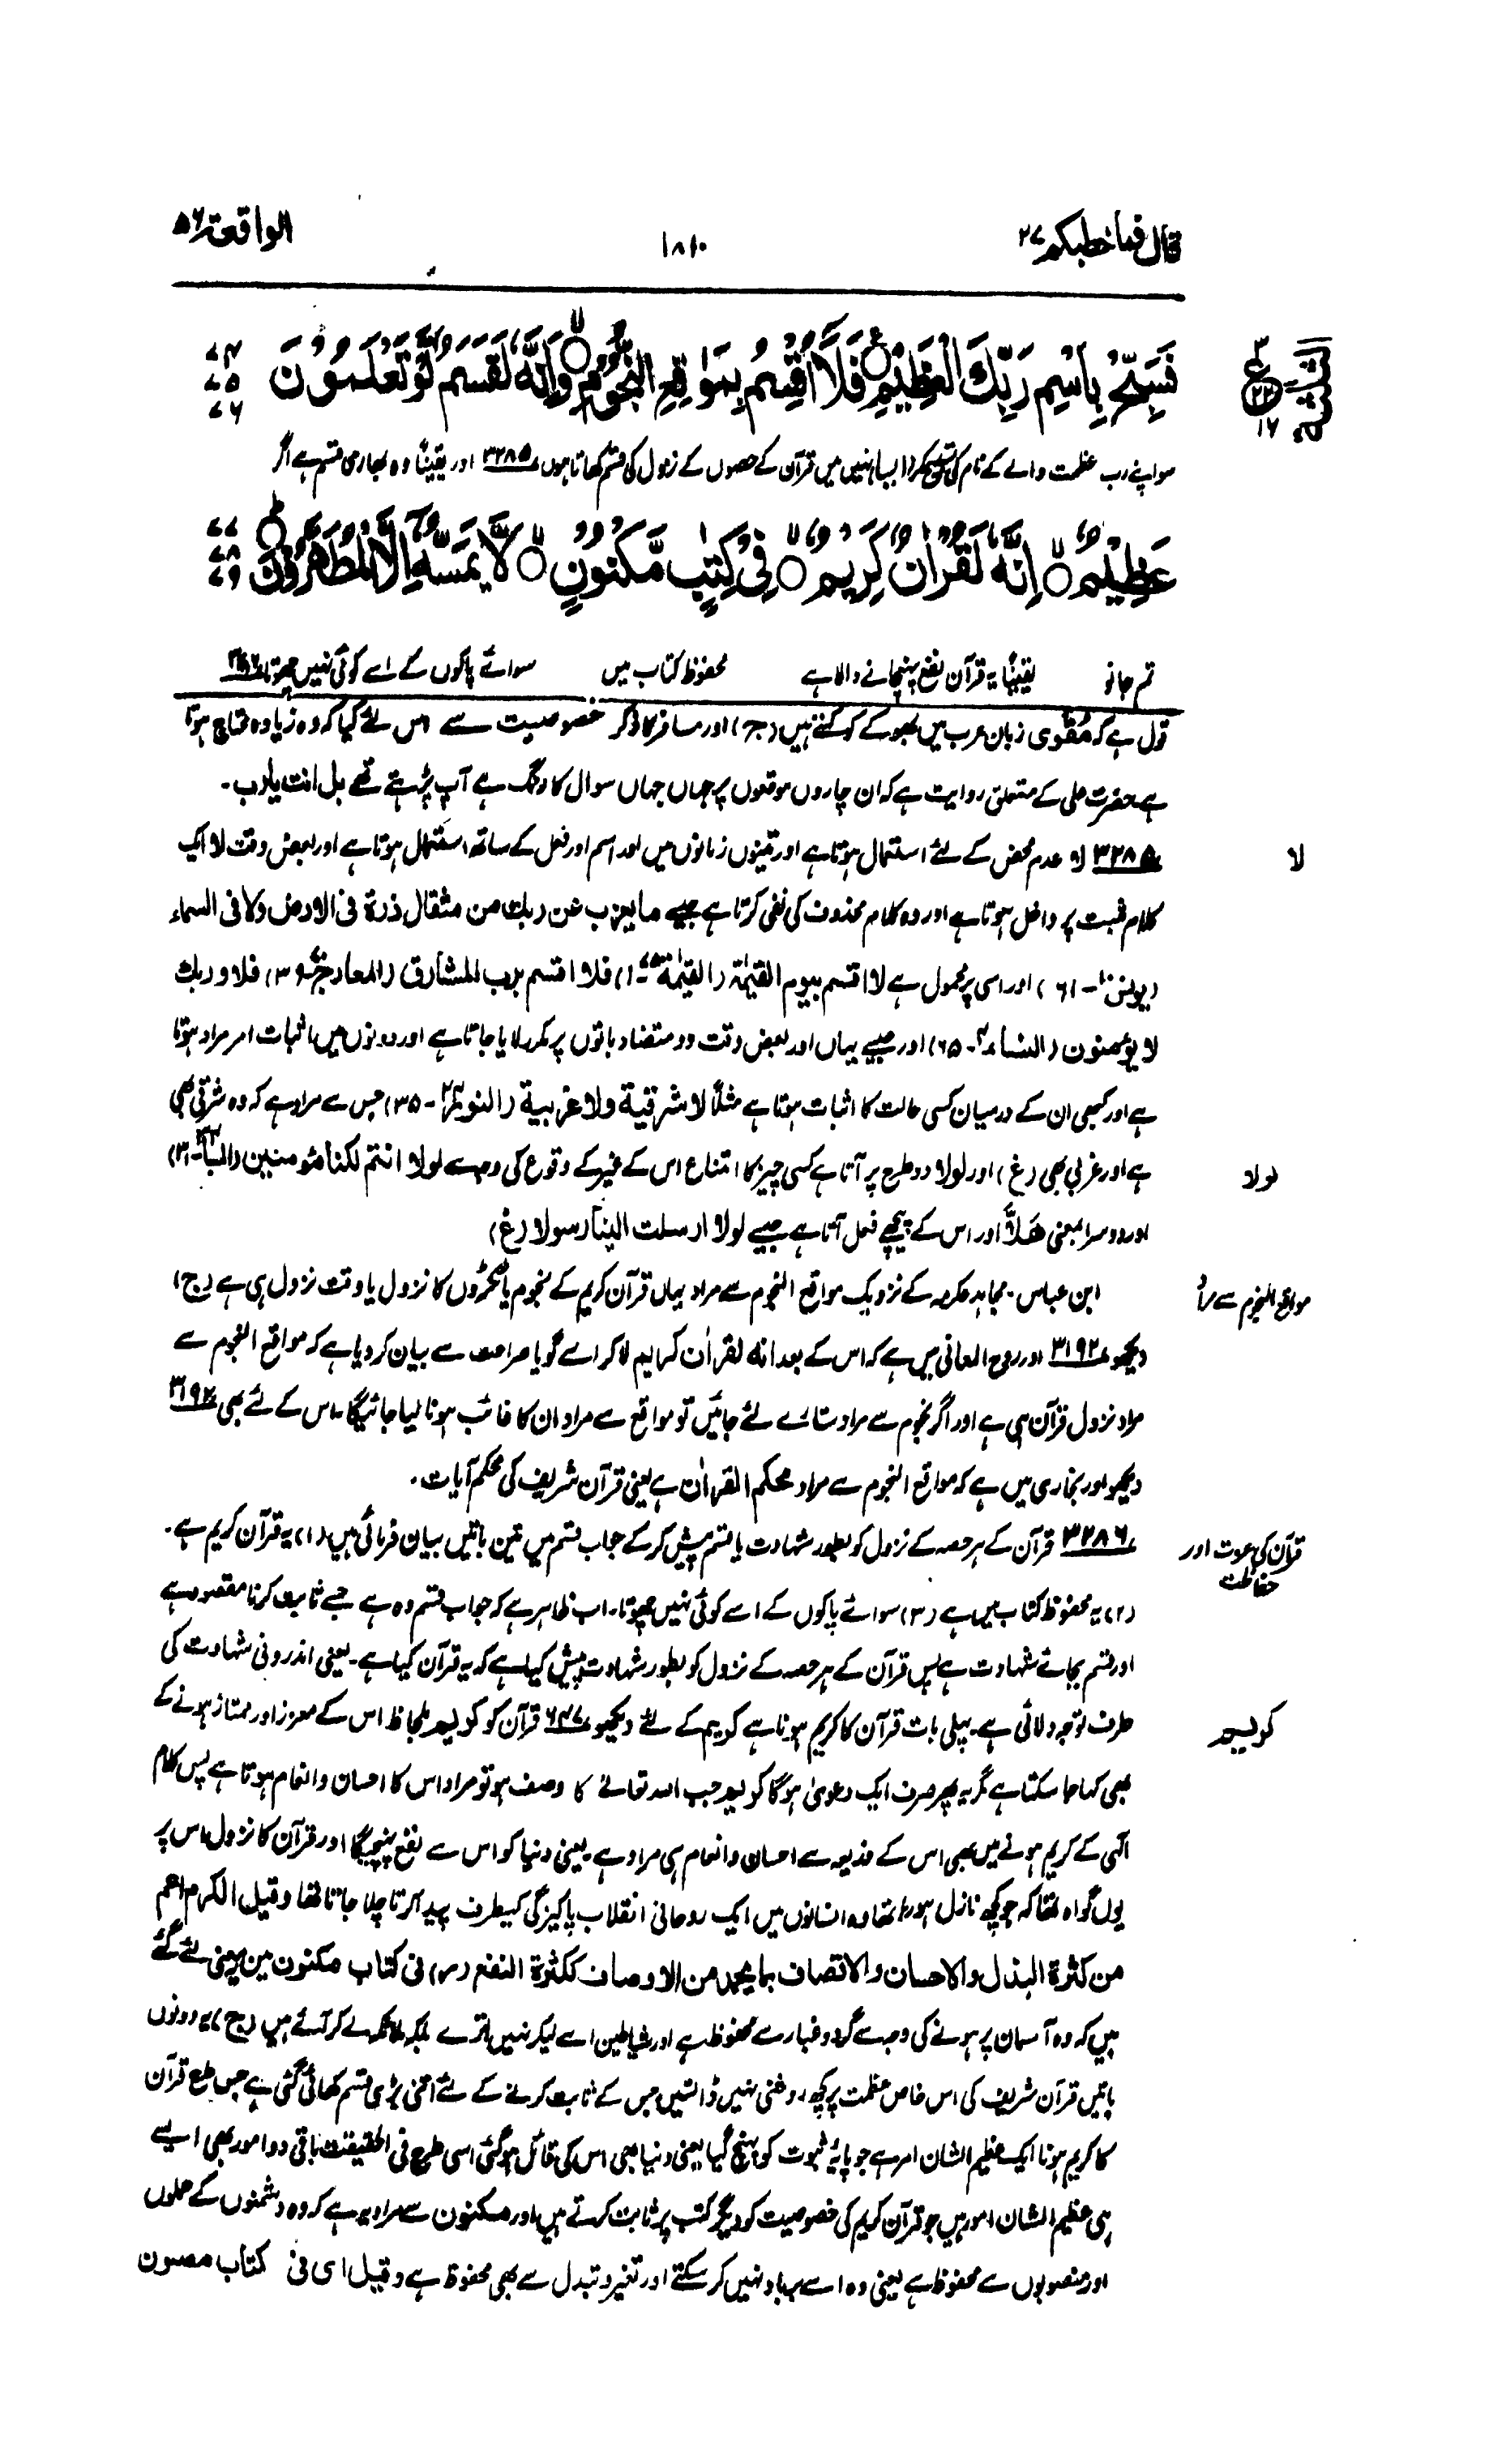 قال فما خطبکم ۲۷
۱۸۱۰
الواقعۃ ۵۶
فَسَبِّحْ بِاسْمِ رَبِّكَ الْعَظِيْمِ ۝ فَلَآ اُقْسِمُ بِمَوٰقِعِ النُّجُوْمِ ۝ وَاِنَّهٗ لَقَسَمٌ لَّوْ تَعْلَمُوْنَ
۷۴
۷۵
۷۶
ع
۱۶
سو اپنے رب عظمت والے کے نام کی تسبیح کر (ایسا) نہیں میں قرآن کے حصوں کے نزول کی قسم کھاتا ہوں ۳۲۸۵ اور یقیناً وہ بھاری قسم ہے اگر
عَظِيْمٌ ۝ اِنَّهٗ لَقُرْاٰنٌ كَرِيْمٌ ۝ فِيْ كِتٰبٍ مَّكْنُوْنٍ ۝ لَّا يَمَسُّهٗٓ اِلَّا الْمُطَهَّرُوْنَ ۝
۷۷
۷۸
۷۹
تم جانو یقیناً یہ قرآن نفع پہنچانے والا ہے محفوظ کتاب میں سوائے پاکوں کے اسے کوئی نہیں چھوتا ۳۲۸۶
قول ہے کہ مُقْوِی زبان عرب میں بھوکے کو کہتے ہیں (ج) اور مسافر کا ذکر خصوصیت سے اس لئے کیا کہ وہ زیادہ محتاج ہوتا
ہے حضرت علی کے متعلق روایت ہے کہ ان چاروں موقعوں پر جہاں جہاں سوال کا رنگ ہے آپ پڑھتے تھے بل انت یارب۔
۳۲۸۵ لا۔ عدم محض کے لئے استعمال ہوتا ہے اور تینوں زمانوں میں اور اسم اور فعل کے ساتھ استعمال ہوتا ہے اور بعض وقت لا ایک
لا
کلام مثبت پر داخل ہوتا ہے اور وہ کلام محذوف کی نفی کرتا ہے جیسے مایعزب عن ربک من مثقال ذرۃ فی الارض ولا فی السماء
(یونس ۱۰-۶۱) اور اسی پر محمول ہے لا اقسم بیوم القیمٰۃ (القیمٰۃ ۷۵-۱) فلا اقسم برب المشارق (المعارج ۷۰-۳۹) فلا وربک
لا یؤمنون (النساء ۴-۶۵) اور جیسے یہاں اور بعض وقت دو متضاد باتوں پر مکرر لایا جاتا ہے اور دونوں میں اثبات امر مراد ہوتا
ہے اور کبھی ان کے درمیان کسی حالت کا اثبات ہوتا ہے مثلاً لا شرقیۃ ولا غربیۃ (النور ۲۴-۳۵) جس سے مراد ہے کہ وہ شرقی بھی
ہے اور غربی بھی (غ) اور لولا دو طرح پر آتا ہے کسی چیز کا امتناع اس کے غیر کے وقوع کی وجہ سے لولا انتم لکنا مؤمنین (السبا ۳۴-۳۱)
لولا
اور دوسرا بمعنی ھَلَّا اور اس کے پیچھے فعل آتا ہے جیسے لولا ارسلت الینا رسولا (غ)
ابن عباس۔ مجاہد عکرمہ کے نزدیک مواقع النجوم سے مراد یہاں قرآن کریم کے نجوم یا ٹکڑوں کا نزول یا وقت نزول ہی ہے (ج)
مواقع النجوم سے مراد
دیکھو ۳۱۹۲ اور روح المعانی میں ہے کہ اس کے بعد انہ لقراٰن کریم لا کر اسے گویا صراحت سے بیان کر دیا ہے کہ مواقع النجوم سے
مراد نزول قرآن ہی ہے اور اگر نجوم سے مراد ستارے لئے جائیں تو مواقع سے مراد ان کا غائب ہونا لیا جائیگا۔ اس کے لئے بھی ۳۱۹۲
دیکھو اور بخاری میں ہے کہ مواقع النجوم سے مراد محکم القراٰن ہے یعنی قرآن شریف کی محکم آیات۔
۳۲۸۶ قرآن کے ہر حصہ کے نزول کو بطور شہادت یا قسم پیش کر کے جواب قسم میں تین باتیں بیان فرمائی ہیں (۱) یہ قرآن کریم ہے۔
قرآن کی عزت اور
حفاظت
(۲) یہ محفوظ کتاب میں ہے (۳) سوائے پاکوں کے اسے کوئی نہیں چھوتا۔ اب ظاہر ہے کہ جواب قسم وہ ہے جسے ثابت کرنا مقصود ہے
اور قسم بجائے شہادت ہے پس قرآن کے ہر حصہ کے نزول کو بطور شہادت پیش کیا ہے کہ یہ قرآن کیا ہے۔ یعنی اندرونی شہادت کی
طرف توجہ دلائی ہے۔ پہلی بات قرآن کا کریم ہونا ہے کریم کے لئے دیکھو ۶۴۷ قرآن کو کریم بلحاظ اس کے معزز اور ممتاز ہونے کے
کریم
بھی کہا جا سکتا ہے مگر یہ پھر صرف ایک دعویٰ ہوگا کریم جب اللہ تعالےٰ کا وصف ہو تو مراد اس کا احسان وانعام ہوتا ہے پس کلام
الٰہی کے کریم ہونے میں بھی اس کے ذریعہ سے احسان وانعام ہی مراد ہے۔ یعنی دنیا کو اس سے نفع پہنچیگا اور قرآن کا نزول اس پر
یوں گواہ تھا کہ جو کچھ نازل ہو رہا تھا وہ انسانوں میں ایک روحانی انقلاب پاکیزگی کیطرف پیدا کرتا چلا جاتا تھا وقیل الکرم اعم
من کثرۃ البذل والاحسان والاتصاف بما یحمد من الاوصاف ککثرۃ النفع (ر) فی کتاب مکنون میں یہ معنی لئے گئے
ہیں کہ وہ آسمان پر ہونے کی وجہ سے گردوغبار سے محفوظ ہے اور شیاطین اسے لیکر نہیں اترے بلکہ ملائکہ لے کر آئے ہیں (ج) یہ دونوں
باتیں قرآن شریف کی اس خاص عظمت پر کچھ روشنی نہیں ڈالتیں جس کے ثابت کرنے کے لئے اتنی بڑی قسم کھائی گئی ہے جس طرح قرآن
کا کریم ہونا ایک عظیم الشان امر ہے جو پایۂ ثبوت کو پہنچ گیا یعنی دنیا بھی اس کی قائل ہو گئی اسی طرح فی الحقیقت باقی دو امور بھی ایسے
ہی عظیم الشان امور ہیں جو قرآن کریم کی خصوصیت کو دیگر کتب پر ثابت کرتے ہیں اور مکنون سے مراد یہ ہے کہ وہ دشمنوں کے حملوں
اور منصوبوں سے محفوظ ہے یعنی وہ اسے برباد نہیں کر سکتے اور تغیر و تبدل سے بھی محفوظ ہے وقیل ای فی کتاب مصون